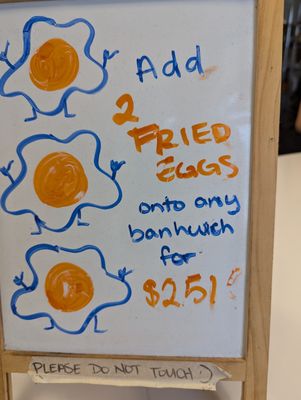 Add
2
FRIED
EGGS
onto any
banhwich
for
$2.5!
PLEASE DO NOT TOUCH :)